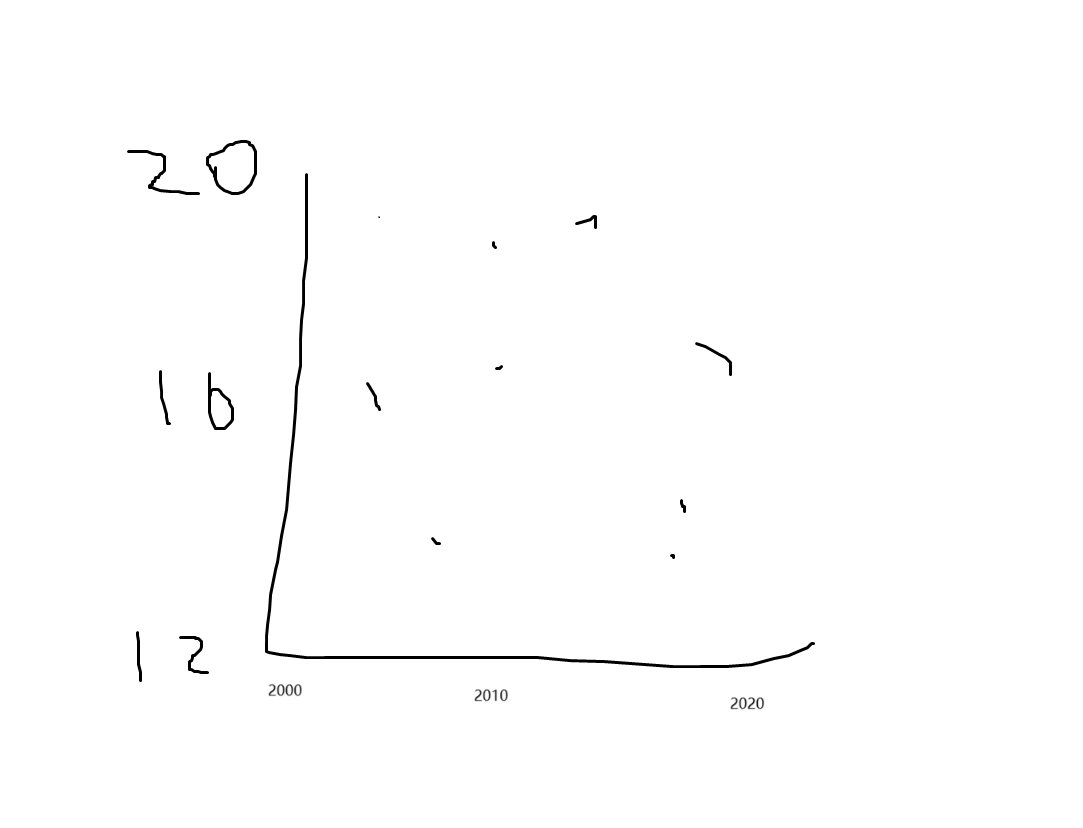 20
16
12
2000 2010 2020